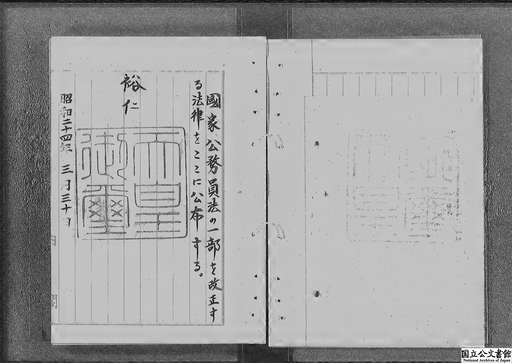 國家公務員法の一部を改正す
る法律をここに公布する。
裕仁
天皇
御璽
昭和二十四年三月三十日
国立公文書館
National Archives of Japan